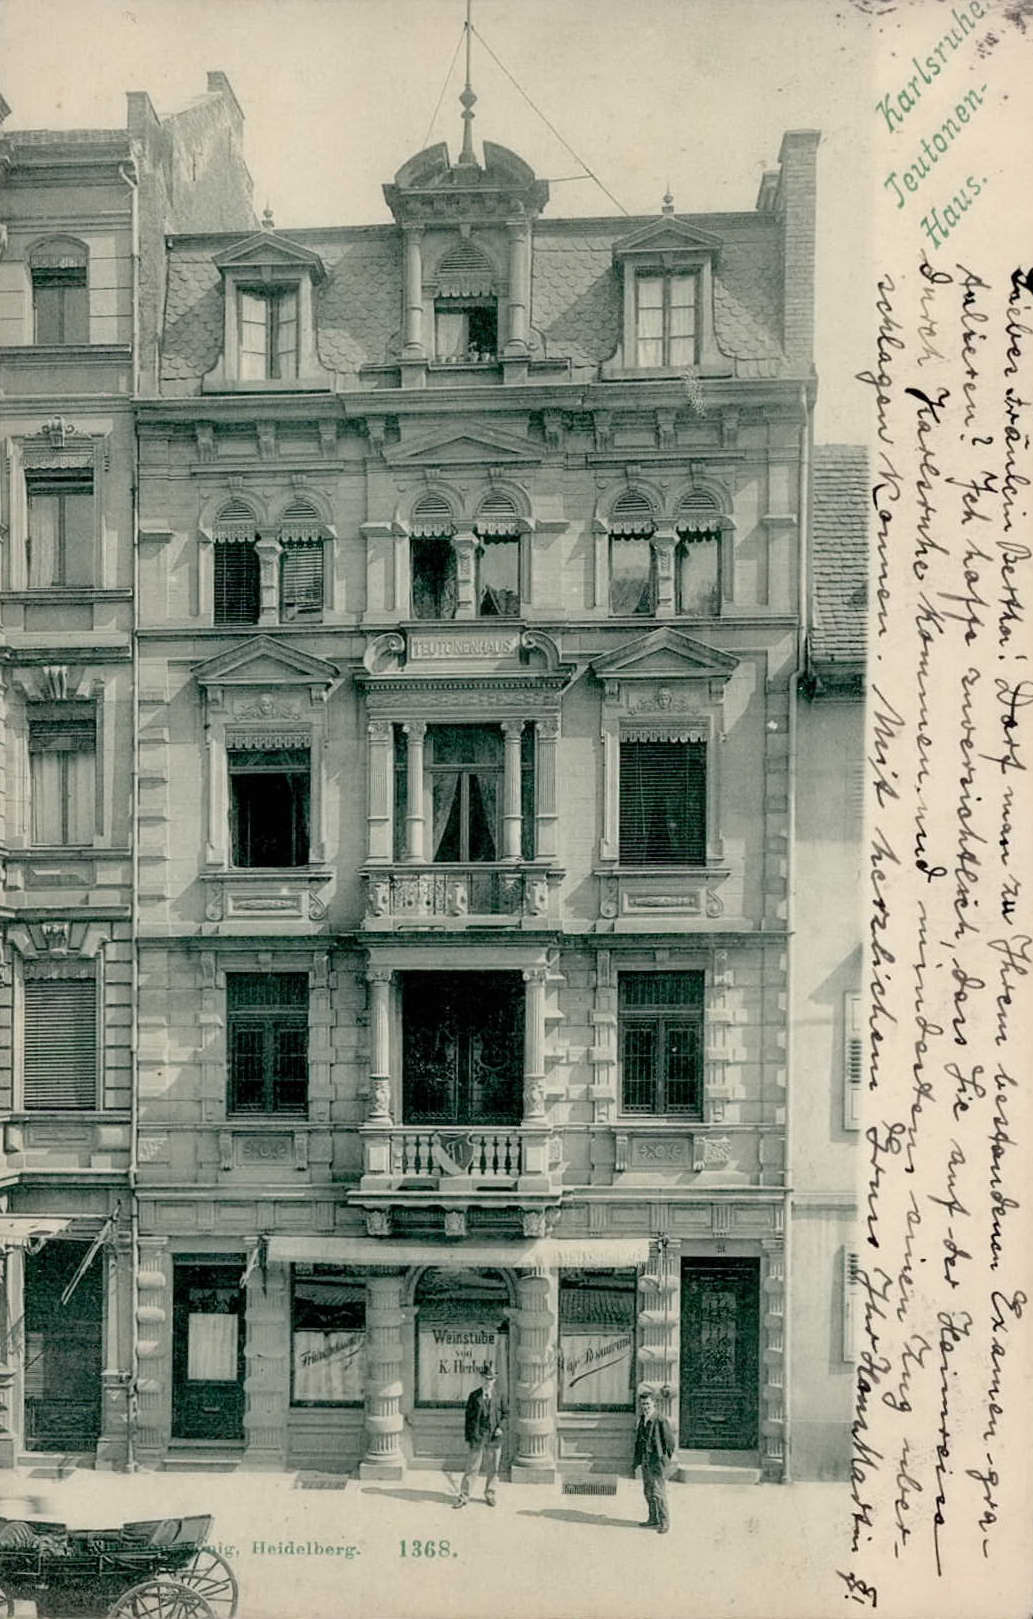 Karlsruhe
Teutonen-
Haus.
Lieber Fräulein Bertha! Darf man zu Ihrem bestandenen Examen gra-
tulieren? Ich hoffe zuversichtlich, dass Sie auf der Heimreise
durch Karlsruhe kommen und mindestens einen Zug über-
schlagen können. Mit herzlichem Gruss Ihr Hans Martin
TEUTONENHAUS
21
Weinstube
von
K. Herbold
Restaurant
nig, Heidelberg. 1368.